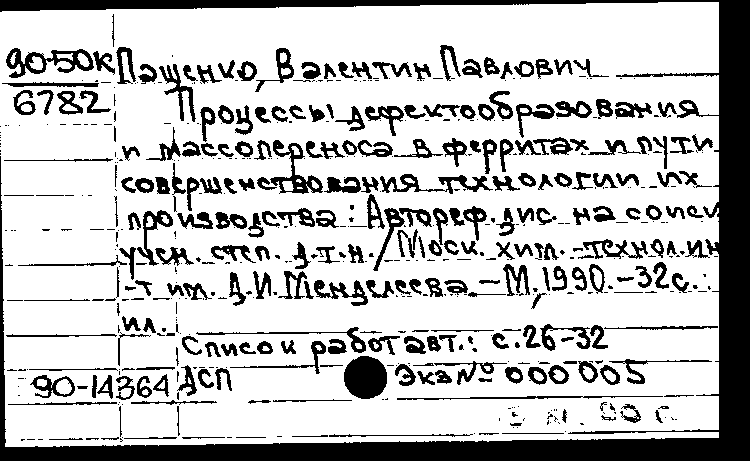 90-50к Пащенко, Валентин Павлович
6782 Процессы дефектообразования
и массопереноса в ферритах и пути
совершенствования технологии их
производства: Автореф. дис. на соиск
учен. степ. д.т.н. / Моск. хим.-технол. ин
-т им. Д.И. Менделеева. - М., 1990. - 32с.:
ил.
Список работ авт.: с. 26-32
90-14364 ДСП Экз № 000005